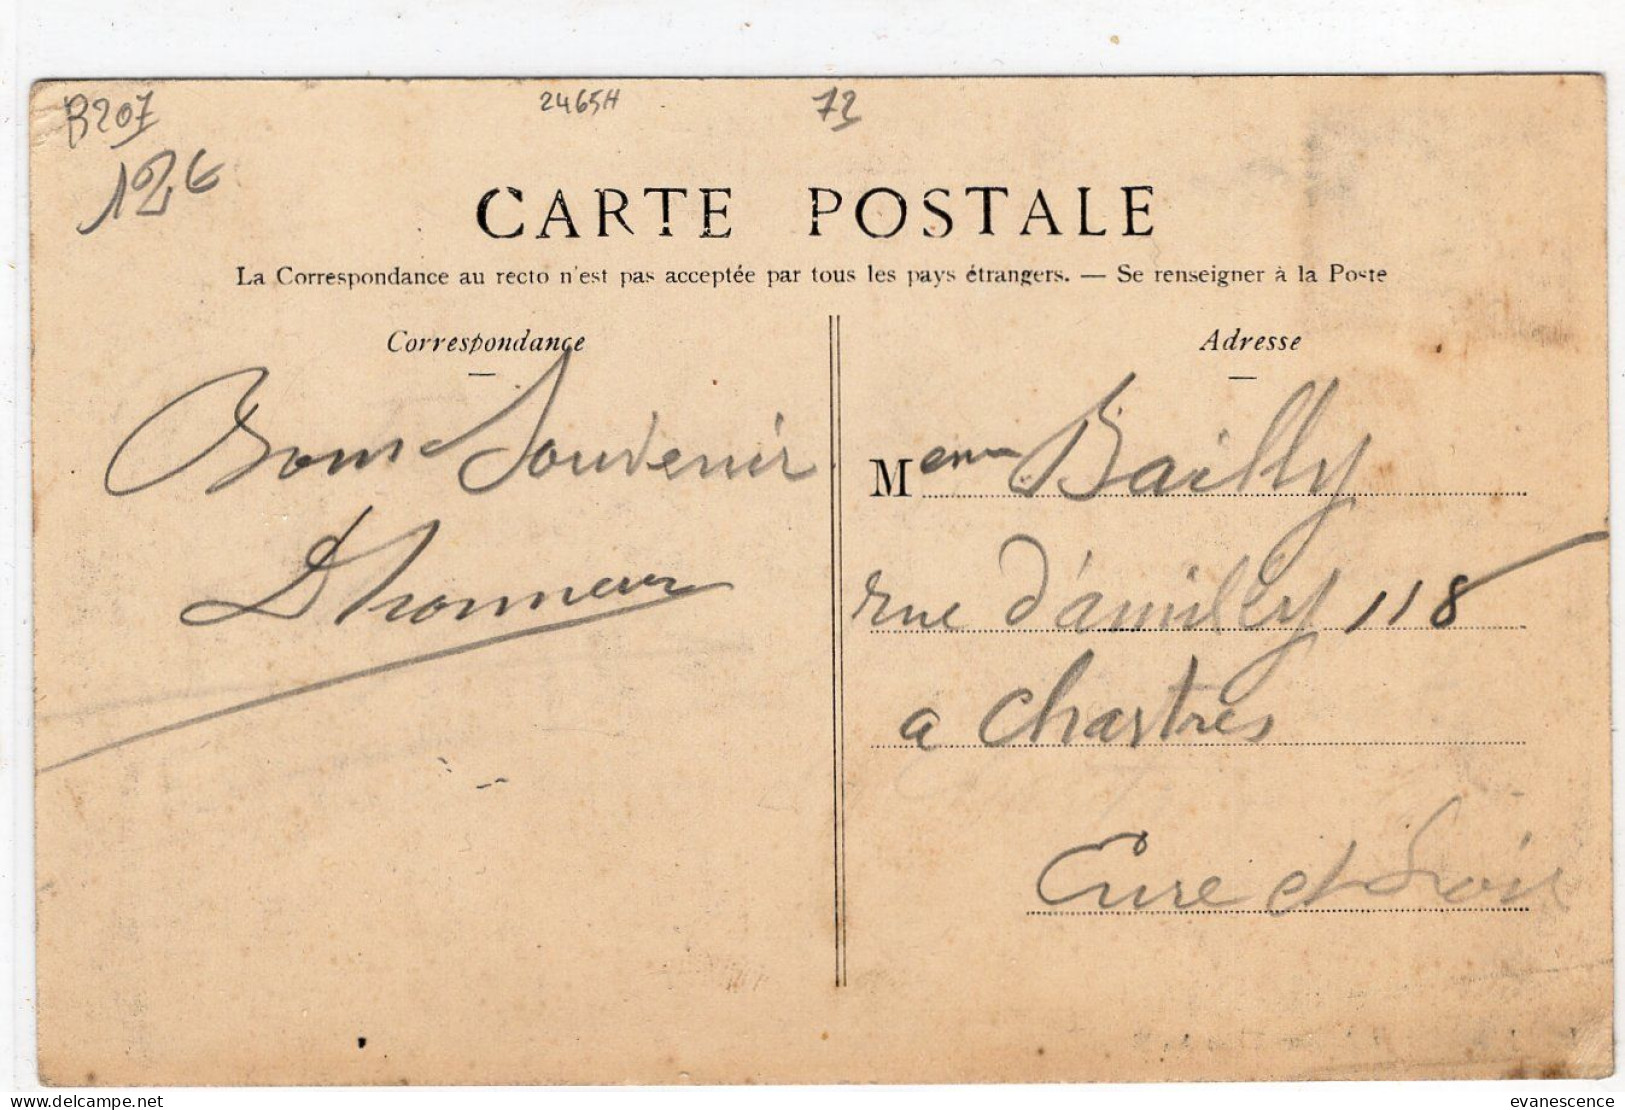 B207
2465H
72
12€
CARTE POSTALE
La Correspondance au recto n'est pas acceptée par tous les pays étrangers. — Se renseigner à la Poste
Correspondance
Bons Souvenir
Adresse
Meme Bailly
rue d'amilly 118
a Chartres
Eure et Loir
delcampe.net
evanescence